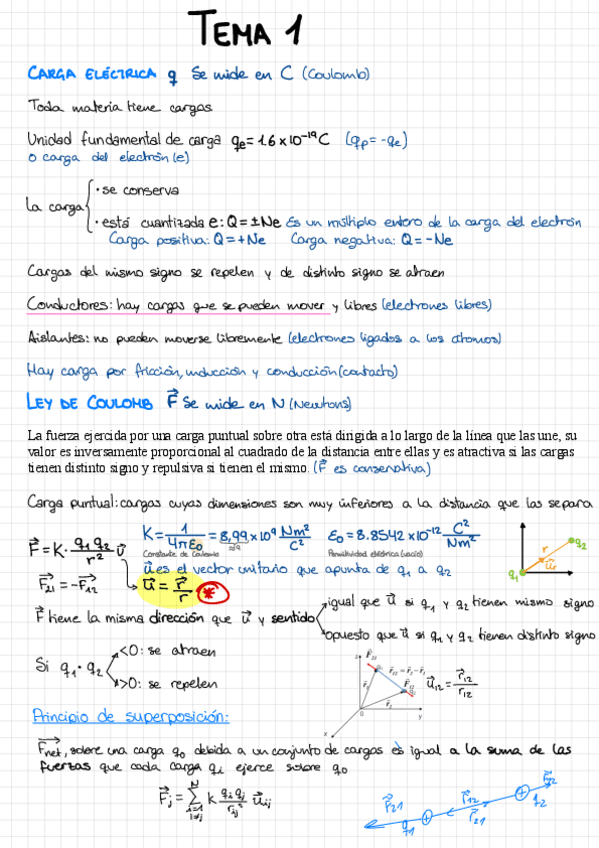 TEMA 1
CARGA ELÉCTRICA q Se mide en C (Coulomb)
Toda materia tiene cargas
Unidad fundamental de carga qe = 1.6 × 10⁻¹⁹ C (qp = -qe)
o carga del electrón (e)
La carga
· se conserva
· está cuantizada e: Q = ± Ne Es un múltiplo entero de la carga del electrón
Carga positiva: Q = +Ne Carga negativa: Q = -Ne
Cargas del mismo signo se repelen y de distinto signo se atraen
Conductores: hay cargas que se pueden mover y libres (electrones libres)
Aislantes: no pueden moverse libremente (electrones ligados a los átomos)
Hay carga por fricción, inducción y conducción (contacto)
LEY DE COULOMB F⃗ Se mide en N (Newtons)
La fuerza ejercida por una carga puntual sobre otra está dirigida a lo largo de la línea que las une, su
valor es inversamente proporcional al cuadrado de la distancia entre ellas y es atractiva si las cargas
tienen distinto signo y repulsiva si tienen el mismo. (F⃗ es conservativa)
Carga puntual: cargas cuyas dimensiones son muy inferiores a la distancia que las separa
F⃗ = K · q₁ q₂ / r² u⃗
K = 1 / 4πε₀ = 8,99 × 10⁹ Nm² / C² ε₀ = 8.8542 × 10⁻¹² C² / Nm²
≈9
Constante de Coulomb Permitividad eléctrica (vacío)
u⃗ es el vector unitario que apunta de q₁ a q₂
F⃗₂₁ = -F⃗₁₂
u⃗ = r⃗ / r *
q₁ r u⃗r q₂
F⃗ tiene la misma dirección que u⃗ y sentido
igual que u⃗ si q₁ y q₂ tienen mismo signo
opuesto que u⃗ si q₁ y q₂ tienen distinto signo
Si q₁ · q₂
<0: se atraen
>0: se repelen
u⃗₁₂ = r⃗₁₂ / r₁₂
Principio de superposición:
F⃗net, sobre una carga q₀ debida a un conjunto de cargas es igual a la suma de las
fuerzas que cada carga qi ejerce sobre q₀
F⃗j = Σ (i=1, i≠j; N) k qi qj / rij² u⃗ij
F⃗₂₁ q₁ r⃗₁₂ r⃗₂₁ q₂ F⃗₁₂